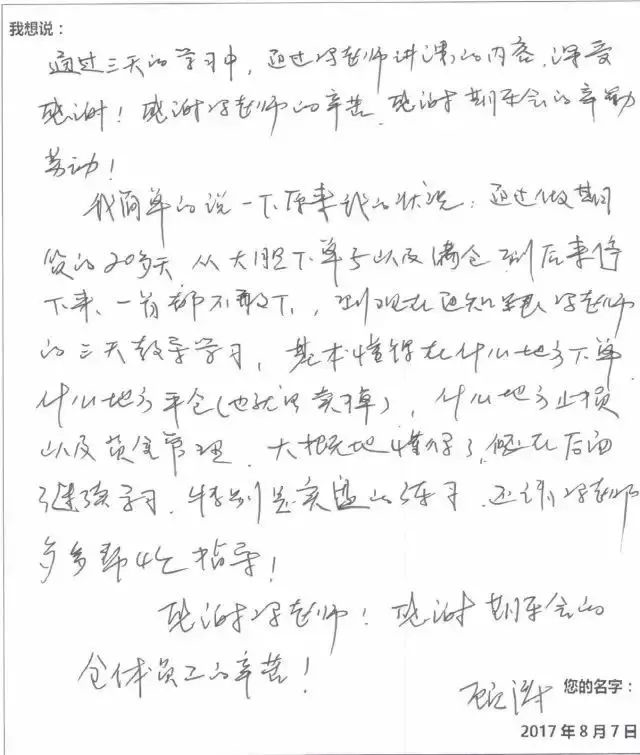 我想说：
通过三天的学习中，通过冯老师讲课的内容，深受
感谢！感谢冯老师的辛苦，感谢期乐会的辛勤
劳动！
我简单的说一下原来我的状况，通过做期
货的20多天，从大胆下单与以及满仓到后来停
下来，一首都不敢下，到现在通知跟冯老师
的三天教导学习，基本懂得在什么地方下单
什么地方平仓（也就是卖掉），什么地方止损
以及资金管理，大概地懂得了，但在后面
继续学习，特别是实盘的练习，还请冯老师
多多帮忙指导！
感谢冯老师！感谢期乐会的
全体员工的辛苦！
您的名字：
2017年8月7日